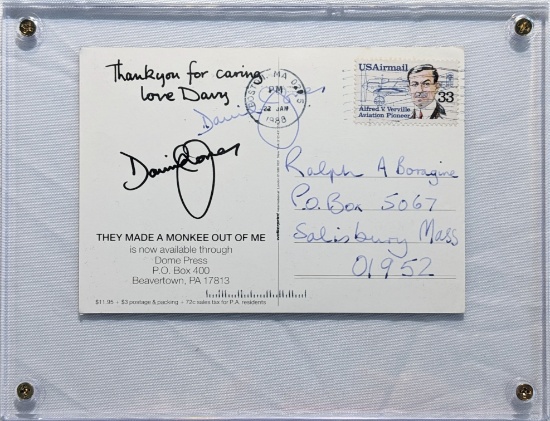 Thankyou for caring
love Davy.
David Jones
David Jones
THEY MADE A MONKEE OUT OF ME
is now available through
Dome Press
P.O. Box 400
Beavertown, PA 17813
$11.95 • $3 postage & packing • 72¢ sales tax for P.A. residents
BOSTON, MA
PM
22 JAN
1988
USAirmail
33
Alfred V. Verville
Aviation Pioneer
Ralph A Boragine
P.O. Box 5067
Salisbury Mass
01952